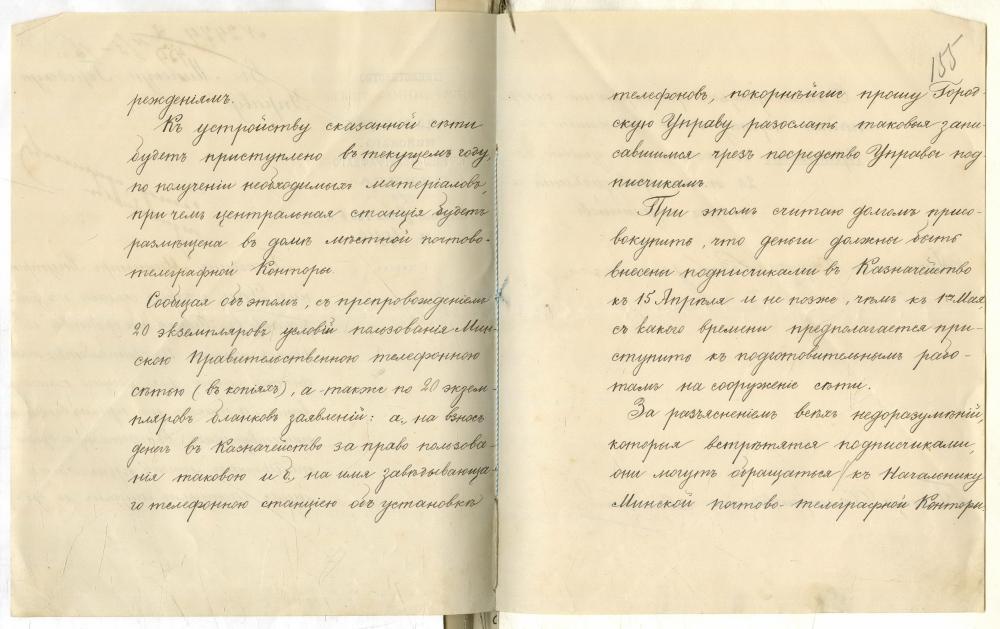 реждениямъ.
Къ устройству сказанной сѣти
будетъ приступлено въ текущемъ году,
по полученіи необходимыхъ матеріаловъ,
при чемъ центральная станція будетъ
размѣщена въ домѣ мѣстной почтово-
телеграфной Конторы.
Сообщая объ этомъ, съ препровожденіемъ
20 экземпляровъ условій пользованія Мин-
скою Правительственною телефонною
сѣтью (въ копіяхъ), а также по 20 экзем-
пляровъ бланковъ заявленій: а, на взносъ
денегъ въ Казначейство за право пользова-
нія таковою и б, на имя завѣдывающа-
го телефонною станціею объ установкѣ
155
телефоновъ, покорнѣйше прошу Город-
скую Управу разослать таковыя запи-
савшимся чрезъ посредство Управы под-
писчикамъ.
При этомъ считаю долгомъ присо-
вокупить, что деньги должны быть
внесены подписчиками въ Казначейство
къ 15 Апрѣля и не позже, чѣмъ къ 1му Мая,
съ какого времени предполагается при-
ступить къ подготовительнымъ рабо-
тамъ на сооруженіе сѣти.
За разъясненіемъ всѣхъ недоразумѣній,
которыя встрѣтятся подписчиками,
они могутъ обращаться къ Начальнику
Минской почтово-телеграфной Конторы,